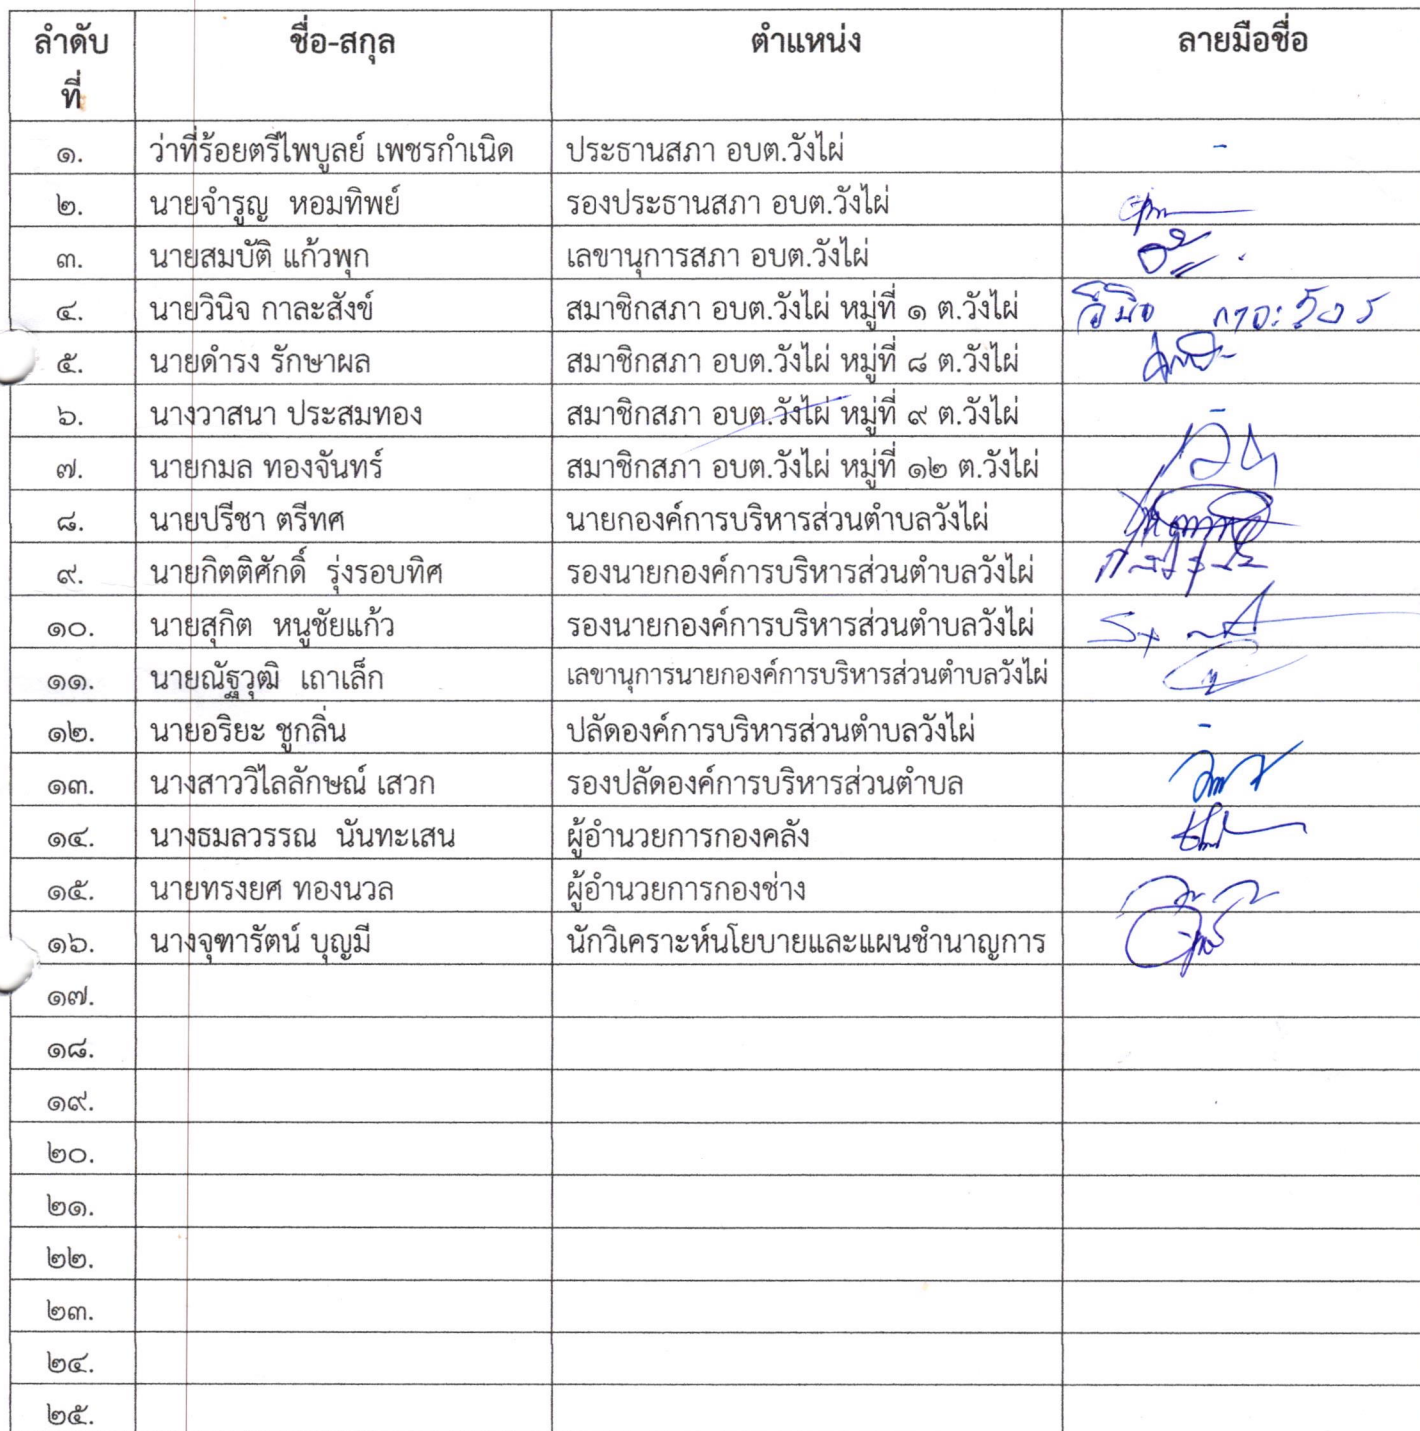 ลำดับ ชื่อ-สกุล ตำแหน่ง ลายมือชื่อ
ที่
๑. ว่าที่ร้อยตรีไพบูลย์ เพชรกำเนิด ประธานสภา อบต.วังไผ่ -
๒. นายจำรูญ หอมทิพย์ รองประธานสภา อบต.วังไผ่
๓. นายสมบัติ แก้วพุก เลขานุการสภา อบต.วังไผ่
๔. นายวินิจ กาละสังข์ สมาชิกสภา อบต.วังไผ่ หมู่ที่ ๑ ต.วังไผ่
๕. นายดำรง รักษาผล สมาชิกสภา อบต.วังไผ่ หมู่ที่ ๘ ต.วังไผ่
๖. นางวาสนา ประสมทอง สมาชิกสภา อบต.วังไผ่ หมู่ที่ ๙ ต.วังไผ่ -
๗. นายกมล ทองจันทร์ สมาชิกสภา อบต.วังไผ่ หมู่ที่ ๑๒ ต.วังไผ่
๘. นายปรีชา ตรีทศ นายกองค์การบริหารส่วนตำบลวังไผ่
๙. นายกิตติศักดิ์ รุ่งรอบทิศ รองนายกองค์การบริหารส่วนตำบลวังไผ่
๑๐. นายสุกิต หนูชัยแก้ว รองนายกองค์การบริหารส่วนตำบลวังไผ่
๑๑. นายณัฐวุฒิ เถาเล็ก เลขานุการนายกองค์การบริหารส่วนตำบลวังไผ่
๑๒. นายอริยะ ชูกลิ่น ปลัดองค์การบริหารส่วนตำบลวังไผ่ -
๑๓. นางสาววิไลลักษณ์ เสวก รองปลัดองค์การบริหารส่วนตำบล
๑๔. นางธมลวรรณ นันทะเสน ผู้อำนวยการกองคลัง
๑๕. นายทรงยศ ทองนวล ผู้อำนวยการกองช่าง
๑๖. นางจุฑารัตน์ บุญมี นักวิเคราะห์นโยบายและแผนชำนาญการ
๑๗.
๑๘.
๑๙.
๒๐.
๒๑.
๒๒.
๒๓.
๒๔.
๒๕.